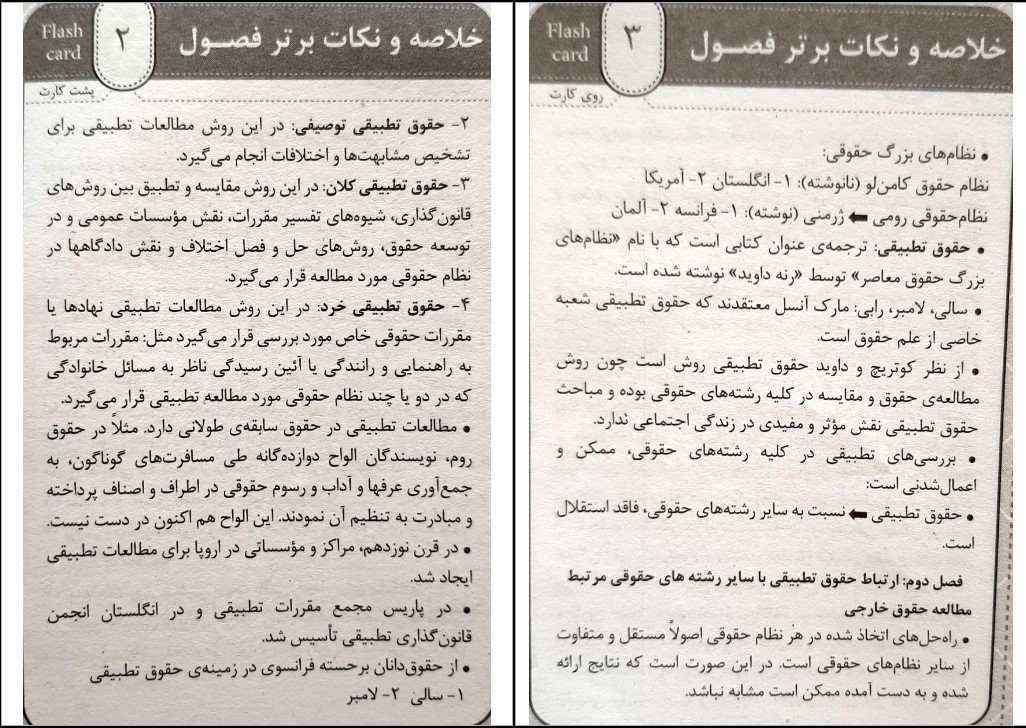 Flash
card
۲
خلاصه و نکات برتر فصـول
پشت کارت
۲- حقوق تطبیقی توصیفی: در این روش مطالعات تطبیقی برای
تشخیص مشابهت‌ها و اختلافات انجام می‌گیرد.
۳- حقوق تطبیقی کلان: در این روش مقایسه و تطبیق بین روش‌های
قانون‌گذاری، شیوه‌های تفسیر مقررات، نقش مؤسسات عمومی و در
توسعه حقوق، روش‌های حل و فصل اختلاف و نقش دادگاهها در
نظام حقوقی مورد مطالعه قرار می‌گیرد.
۴- حقوق تطبیقی خرد: در این روش مطالعات تطبیقی نهادها یا
مقررات حقوقی خاص مورد بررسی قرار می‌گیرد مثل: مقررات مربوط
به راهنمایی و رانندگی یا آئین رسیدگی ناظر به مسائل خانوادگی
که در دو یا چند نظام حقوقی مورد مطالعه تطبیقی قرار می‌گیرد.
• مطالعات تطبیقی در حقوق سابقه‌ی طولانی دارد. مثلاً در حقوق
روم، نویسندگان الواح دوازده‌گانه طی مسافرت‌های گوناگون، به
جمع‌آوری عرفها و آداب و رسوم حقوقی در اطراف و اصناف پرداخته
و مبادرت به تنظیم آن نمودند. این الواح هم اکنون در دست نیست.
• در قرن نوزدهم، مراکز و مؤسساتی در اروپا برای مطالعات تطبیقی
ایجاد شد.
• در پاریس مجمع مقررات تطبیقی و در انگلستان انجمن
قانون‌گذاری تطبیقی تأسیس شد.
• از حقوق‌دانان برجسته فرانسوی در زمینه‌ی حقوق تطبیقی
۱- سالی ۲- لامبر
Flash
card
۳
خلاصه و نکات برتر فصـول
روی کارت
• نظام‌های بزرگ حقوقی:
نظام حقوق کامن‌لو (نانوشته): ۱- انگلستان ۲- آمریکا
نظام‌حقوقی رومی ⬅ ژرمنی (نوشته): ۱- فرانسه ۲- آلمان
• حقوق تطبیقی: ترجمه‌ی عنوان کتابی است که با نام «نظام‌های
بزرگ حقوق معاصر» توسط «رنه داوید» نوشته شده است.
• سالی، لامبر، رابی: مارک آنسل معتقدند که حقوق تطبیقی شعبه
خاصی از علم حقوق است.
• از نظر کوتریچ و داوید حقوق تطبیقی روش است چون روش
مطالعه‌ی حقوق و مقایسه در کلیه رشته‌های حقوقی بوده و مباحث
حقوق تطبیقی نقش مؤثر و مفیدی در زندگی اجتماعی ندارد.
• بررسی‌های تطبیقی در کلیه رشته‌های حقوقی، ممکن و
اعمال‌شدنی است:
• حقوق تطبیقی ⬅ نسبت به سایر رشته‌های حقوقی، فاقد استقلال
است.
فصل دوم: ارتباط حقوق تطبیقی با سایر رشته های حقوقی مرتبط
مطالعه حقوق خارجی
• راه‌حل‌های اتخاذ شده در هر نظام حقوقی اصولاً مستقل و متفاوت
از سایر نظام‌های حقوقی است. در این صورت است که نتایج ارائه
شده و به دست آمده ممکن است مشابه نباشد.